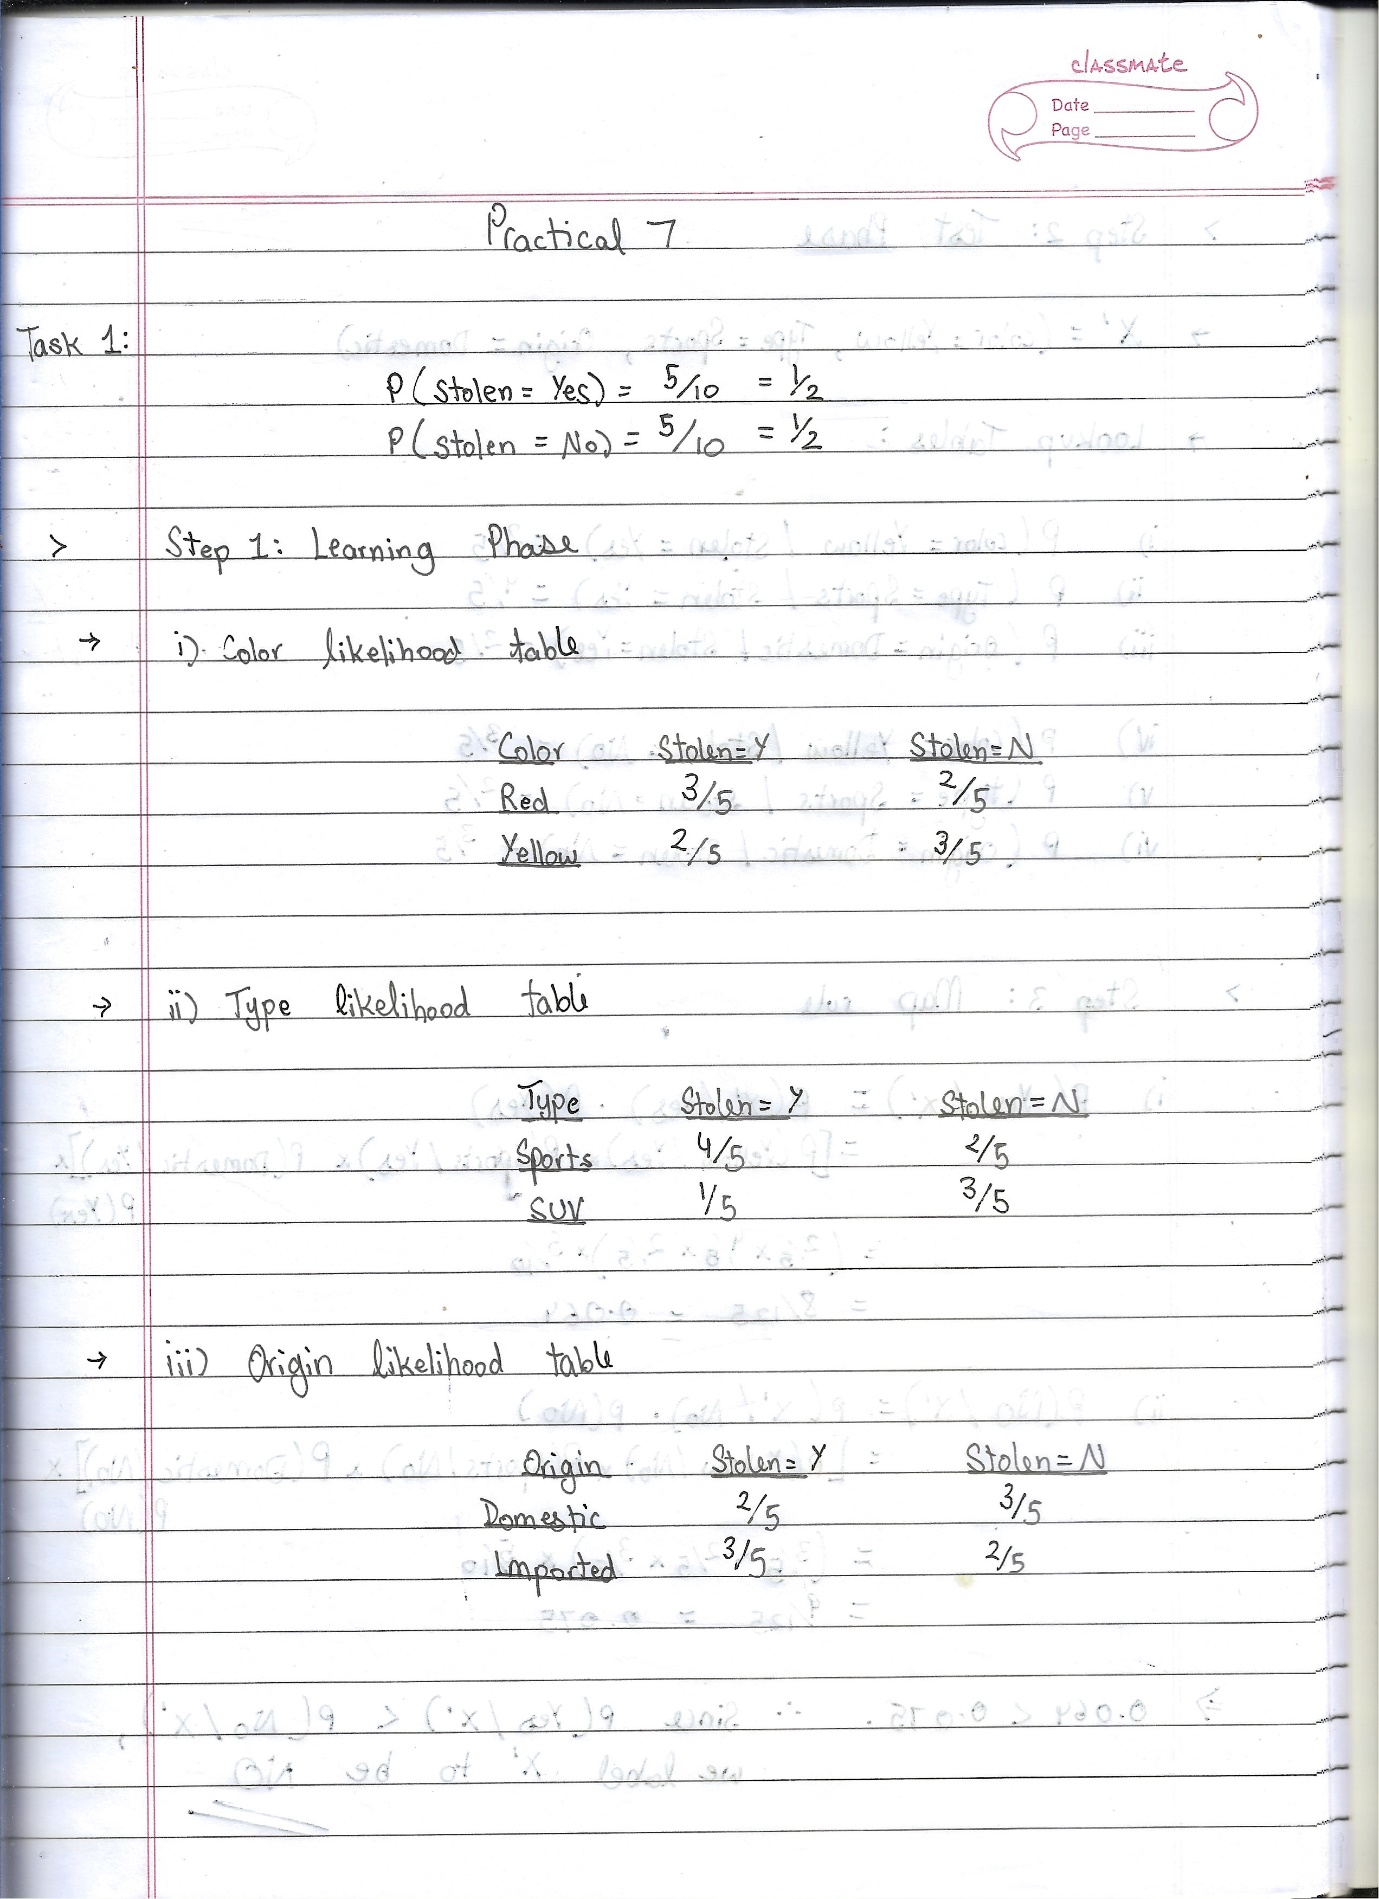 classmate
Date
Page
Practical 7
Task 1:
P(Stolen = Yes) = 5/10 = 1/2
P(Stolen = No) = 5/10 = 1/2
> Step 1: Learning Phase
→ i) Color likelihood table
Color Stolen=Y Stolen=N
Red 3/5 2/5
Yellow 2/5 3/5
→ ii) Type likelihood table
Type Stolen=Y Stolen=N
Sports 4/5 2/5
SUV 1/5 3/5
→ iii) Origin likelihood table
Origin Stolen=Y Stolen=N
Domestic 2/5 3/5
Imported 3/5 2/5